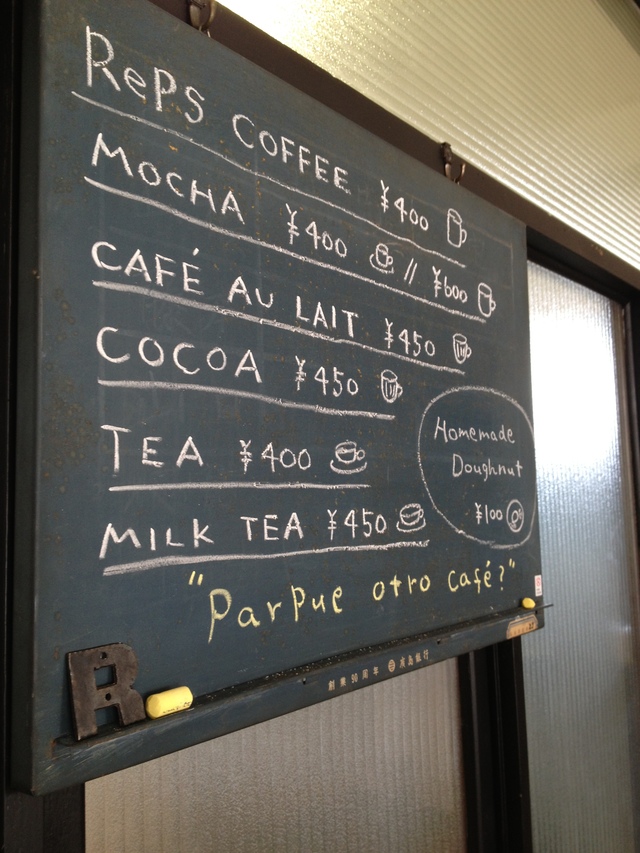 RePS COFFEE ¥400
MOCHA ¥400 // ¥600
CAFÉ AU LAIT ¥450
COCOA ¥450
TEA ¥400
MILK TEA ¥450
Homemade
Doughnut
¥100
"Parpue otro café?"
R
創業90周年 廣島銀行